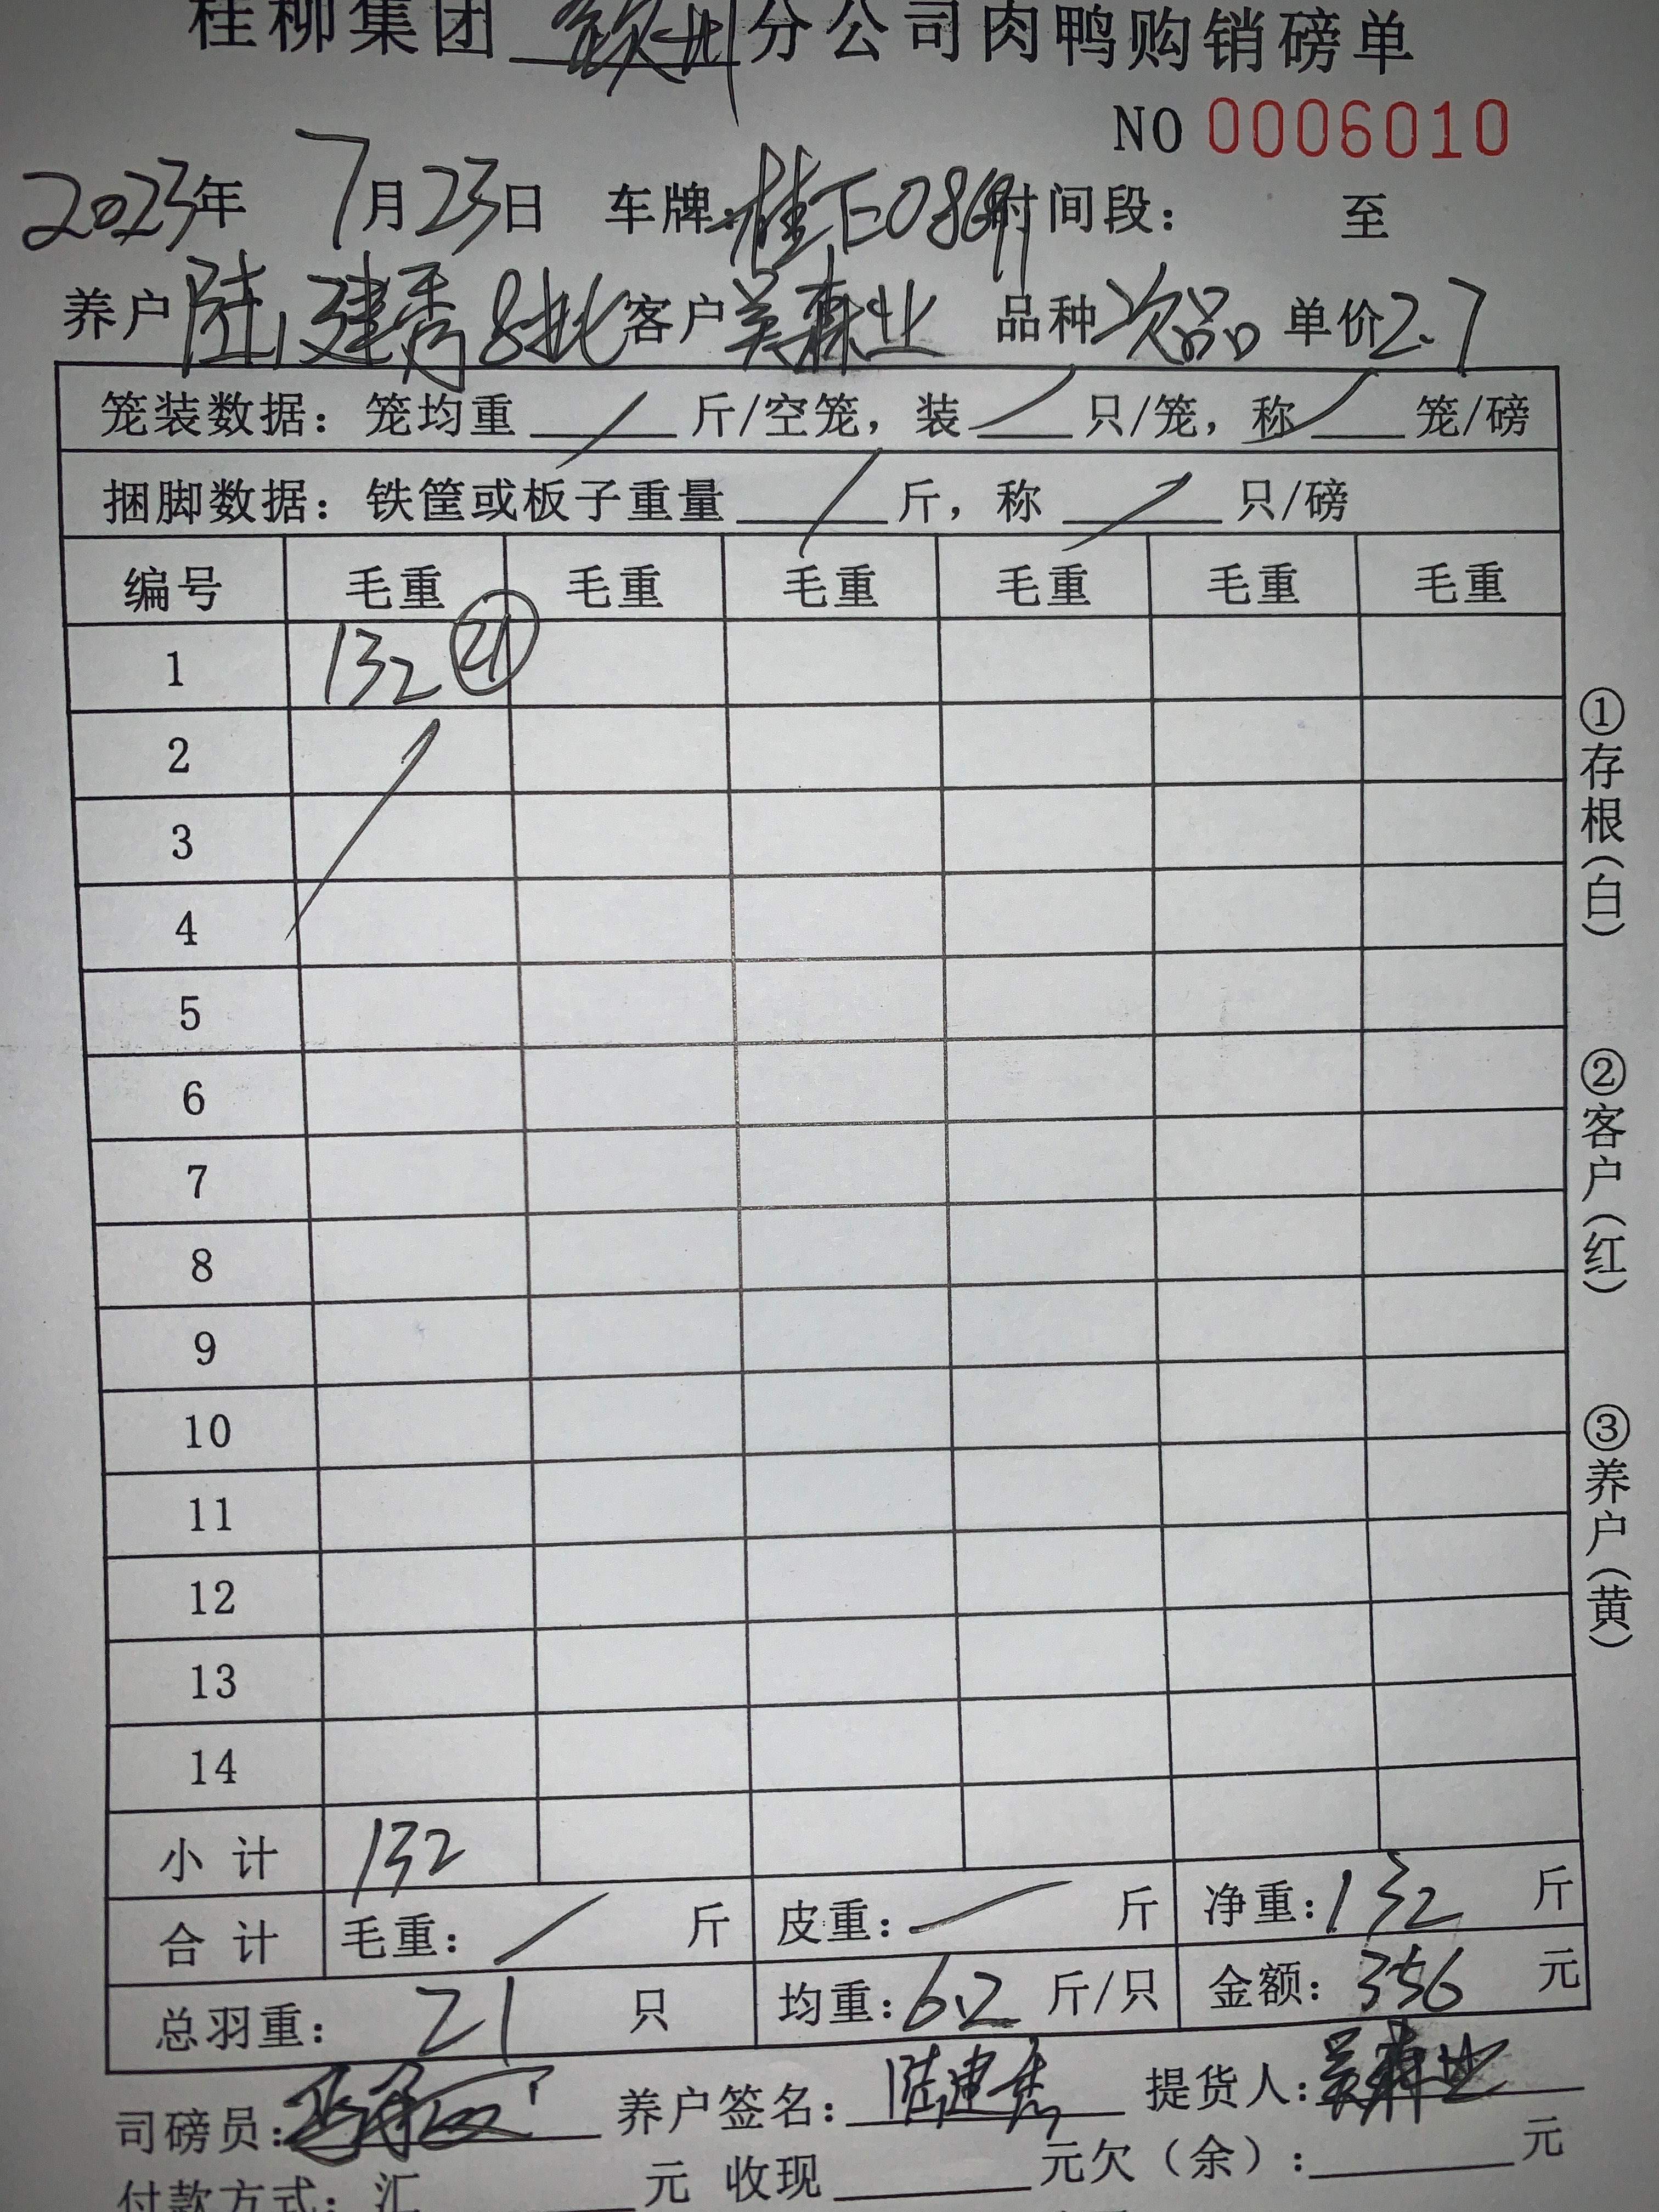 桂柳集团 钦州 分公司肉鸭购销磅单
NO 0006010
2023年 7月23日 车牌:桂E0869 时间段: 至
养户 陆建秀8批 客户 吴森业 品种 次品 单价2.7
笼装数据:笼均重 / 斤/空笼,装 / 只/笼,称 / 笼/磅
捆脚数据:铁筐或板子重量 / 斤,称 / 只/磅
编号 毛重 毛重 毛重 毛重 毛重 毛重
1 132 21
2
3
4
5
6
7
8
9
10
11
12
13
14
小计 132
合计 毛重: / 斤 皮重: / 斤 净重:132 斤
总羽重: 21 只 均重:6.2 斤/只 金额:356 元
司磅员: 养户签名:陆建秀 提货人:吴森业
付款方式:汇 元 收现 元欠(余): 元
①存根(白)
②客户(红)
③养户(黄)